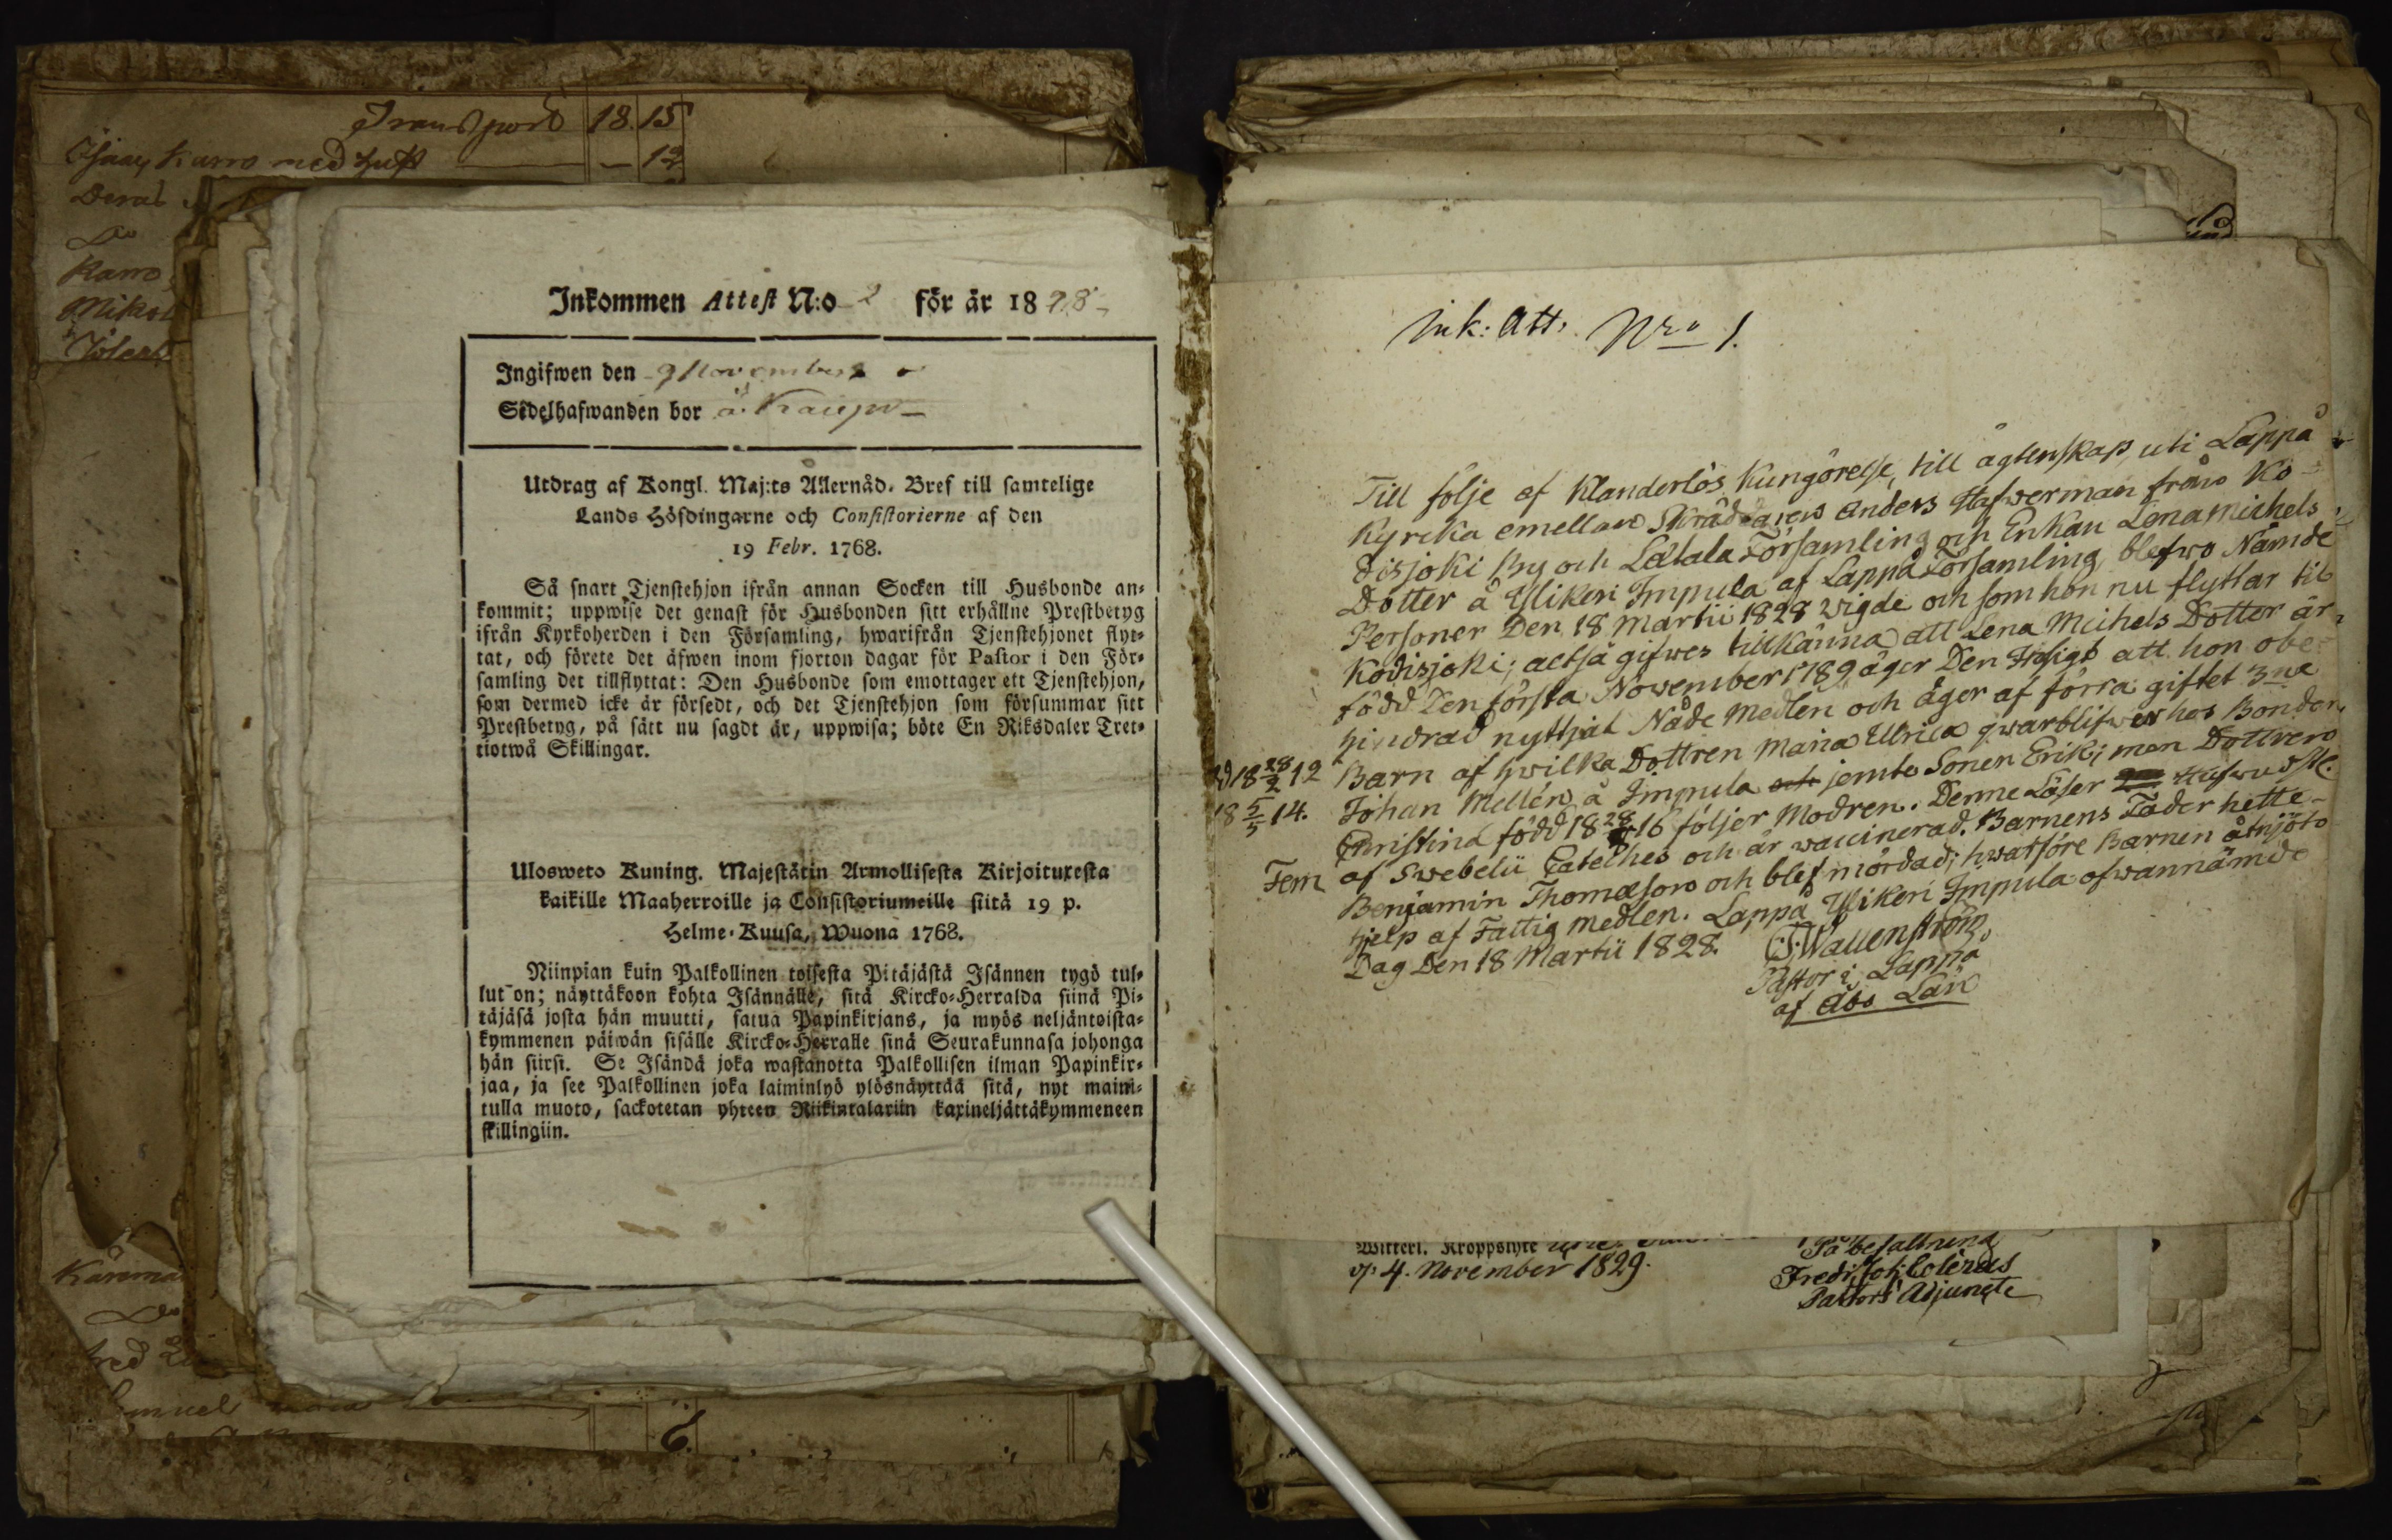 Transport 18. 15
med hust — 12
Karro
Inkommen Attest N:o 2 för år 1828
Ingifwen den 9 November
Sedelhafwanden bor å Kaupo
Utdrag af Kongl. Maj:ts Allernåd. Bref till samtelige
Lands Höfdingarne och Consistorierne af den
19 Febr. 1768.
Så snart Tjenstehjon ifrån annan Socken till Husbonde an-
kommit; uppwise det genast för Husbonden sitt erhållne Prestbetyg
ifrån Kyrkoherden i den Församling, hwarifrån Tjenstehjonet flyt-
tat, och förete det äfwen inom fjorton dagar för Pastor i den För-
samling det tillflyttat: Den Husbonde som emottager ett Tjenstehjon,
som dermed icke är försedt, och det Tjenstehjon som försummar sitt
Prestbetyg, på sätt nu sagdt är, uppwisa; böte En Riksdaler Tret-
tiotwå Skillingar.
Ulosweto Kuning. Majestätin Armollisesta Kirjoituxesta
kaikille Maaherroille ja Consistoriumeille siitä 19 p.
Helme-Kuusa, Wuona 1768.
Niinpian kuin Palkollinen toisesta Pitäjästä Isännen tygö tul-
lut on; näyttäkoon kohta Isännälle, sitä Kircko-Herralda siinä Pi-
täjäsä josta hän muutti, saatua Papinkirjans, ja myös neljäntoista-
kymmenen päiwän sisälle Kircko-Herralle sinä Seurakunnasa johonga
hän siirsi. Se Isändä joka wastanotta Palkollisen ilman Papinkir-
jaa, ja see Palkollinen joka laiminlyö ylösnäyttää sitä, nyt maini-
tulla muoto, sackotetan yhteen Riikintalariin kaxineljättäkymmeneen
skillingiin.
6.
Ink: Att: Nro 1.
Till följe af Klanderlös Kungörelse, till ägtenskap, uti Lappå
Kyrcka emellan Skräddaren Anders Hafwerman från Ko-
disjoki By och Letala Församling och Enkan Lena Michels
Dotter å Ylikeri Impula af Lappå Församling, blefwo Nämde
Personer Den 18 Martii 1828 Wigde och som hon nu flyttar til
Kodisjoki; altså gifwes tillkänna att Lena Michels Dotter är,
född Den första November 1789 äger Den Insigt att hon obe-
hindrad nyttjat Nåde Medlen och äger af förra giftet 3ne
Barn af hwilka Dottren Maria Ulrica qwarblifwer hos Bonden
18 28/2 12
Johan Mellén å Impula och jemte Sonen Erik; men Dottren
18 5/5 14.
Christina född 18 28 16 följer Modren. Denne Läser Hufwudst.
Fem af Swebelii Cateches och är waccinerad. Barnens Fader hette
Benjamin Thomæson och blef mördad; hwarföre Barnen åtnjöto
hjelp af Fattig medlen. Lappå Ylikeri Impula ofwannämde
Dag Den 18 Martii 1828.
Wallenström
Pastor i Lappå
af Åbo Län
Witterl. Kroppslyte
På befallning
4. November 1829.
Pastors Adjunct